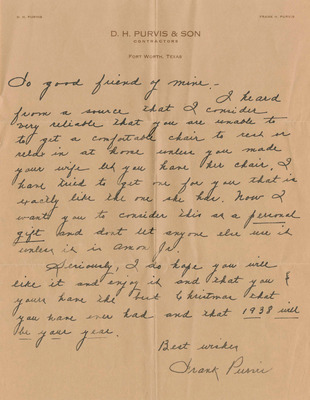 D. H. PURVIS
FRANK H. PURVIS
D. H. PURVIS & SON
CONTRACTORS
FORT WORTH, TEXAS
To good friend of mine,-
I heard
from a source that I consider
very reliable that you are unable to
to get a comfortable chair to rest or
relax in at home unless you made
your wife let you have her chair. I
have tried to get one for you that is
exactly like the one she has. Now I
want you to consider this as a personal
gift and dont let anyone else use it
unless it is Amon Jr.
Seriously, I do hope you will
like it and enjoy it and that you &
yours have the best Christmas that
you have ever had and that 1938 will
be your year.
Best wishes
Frank Purvis